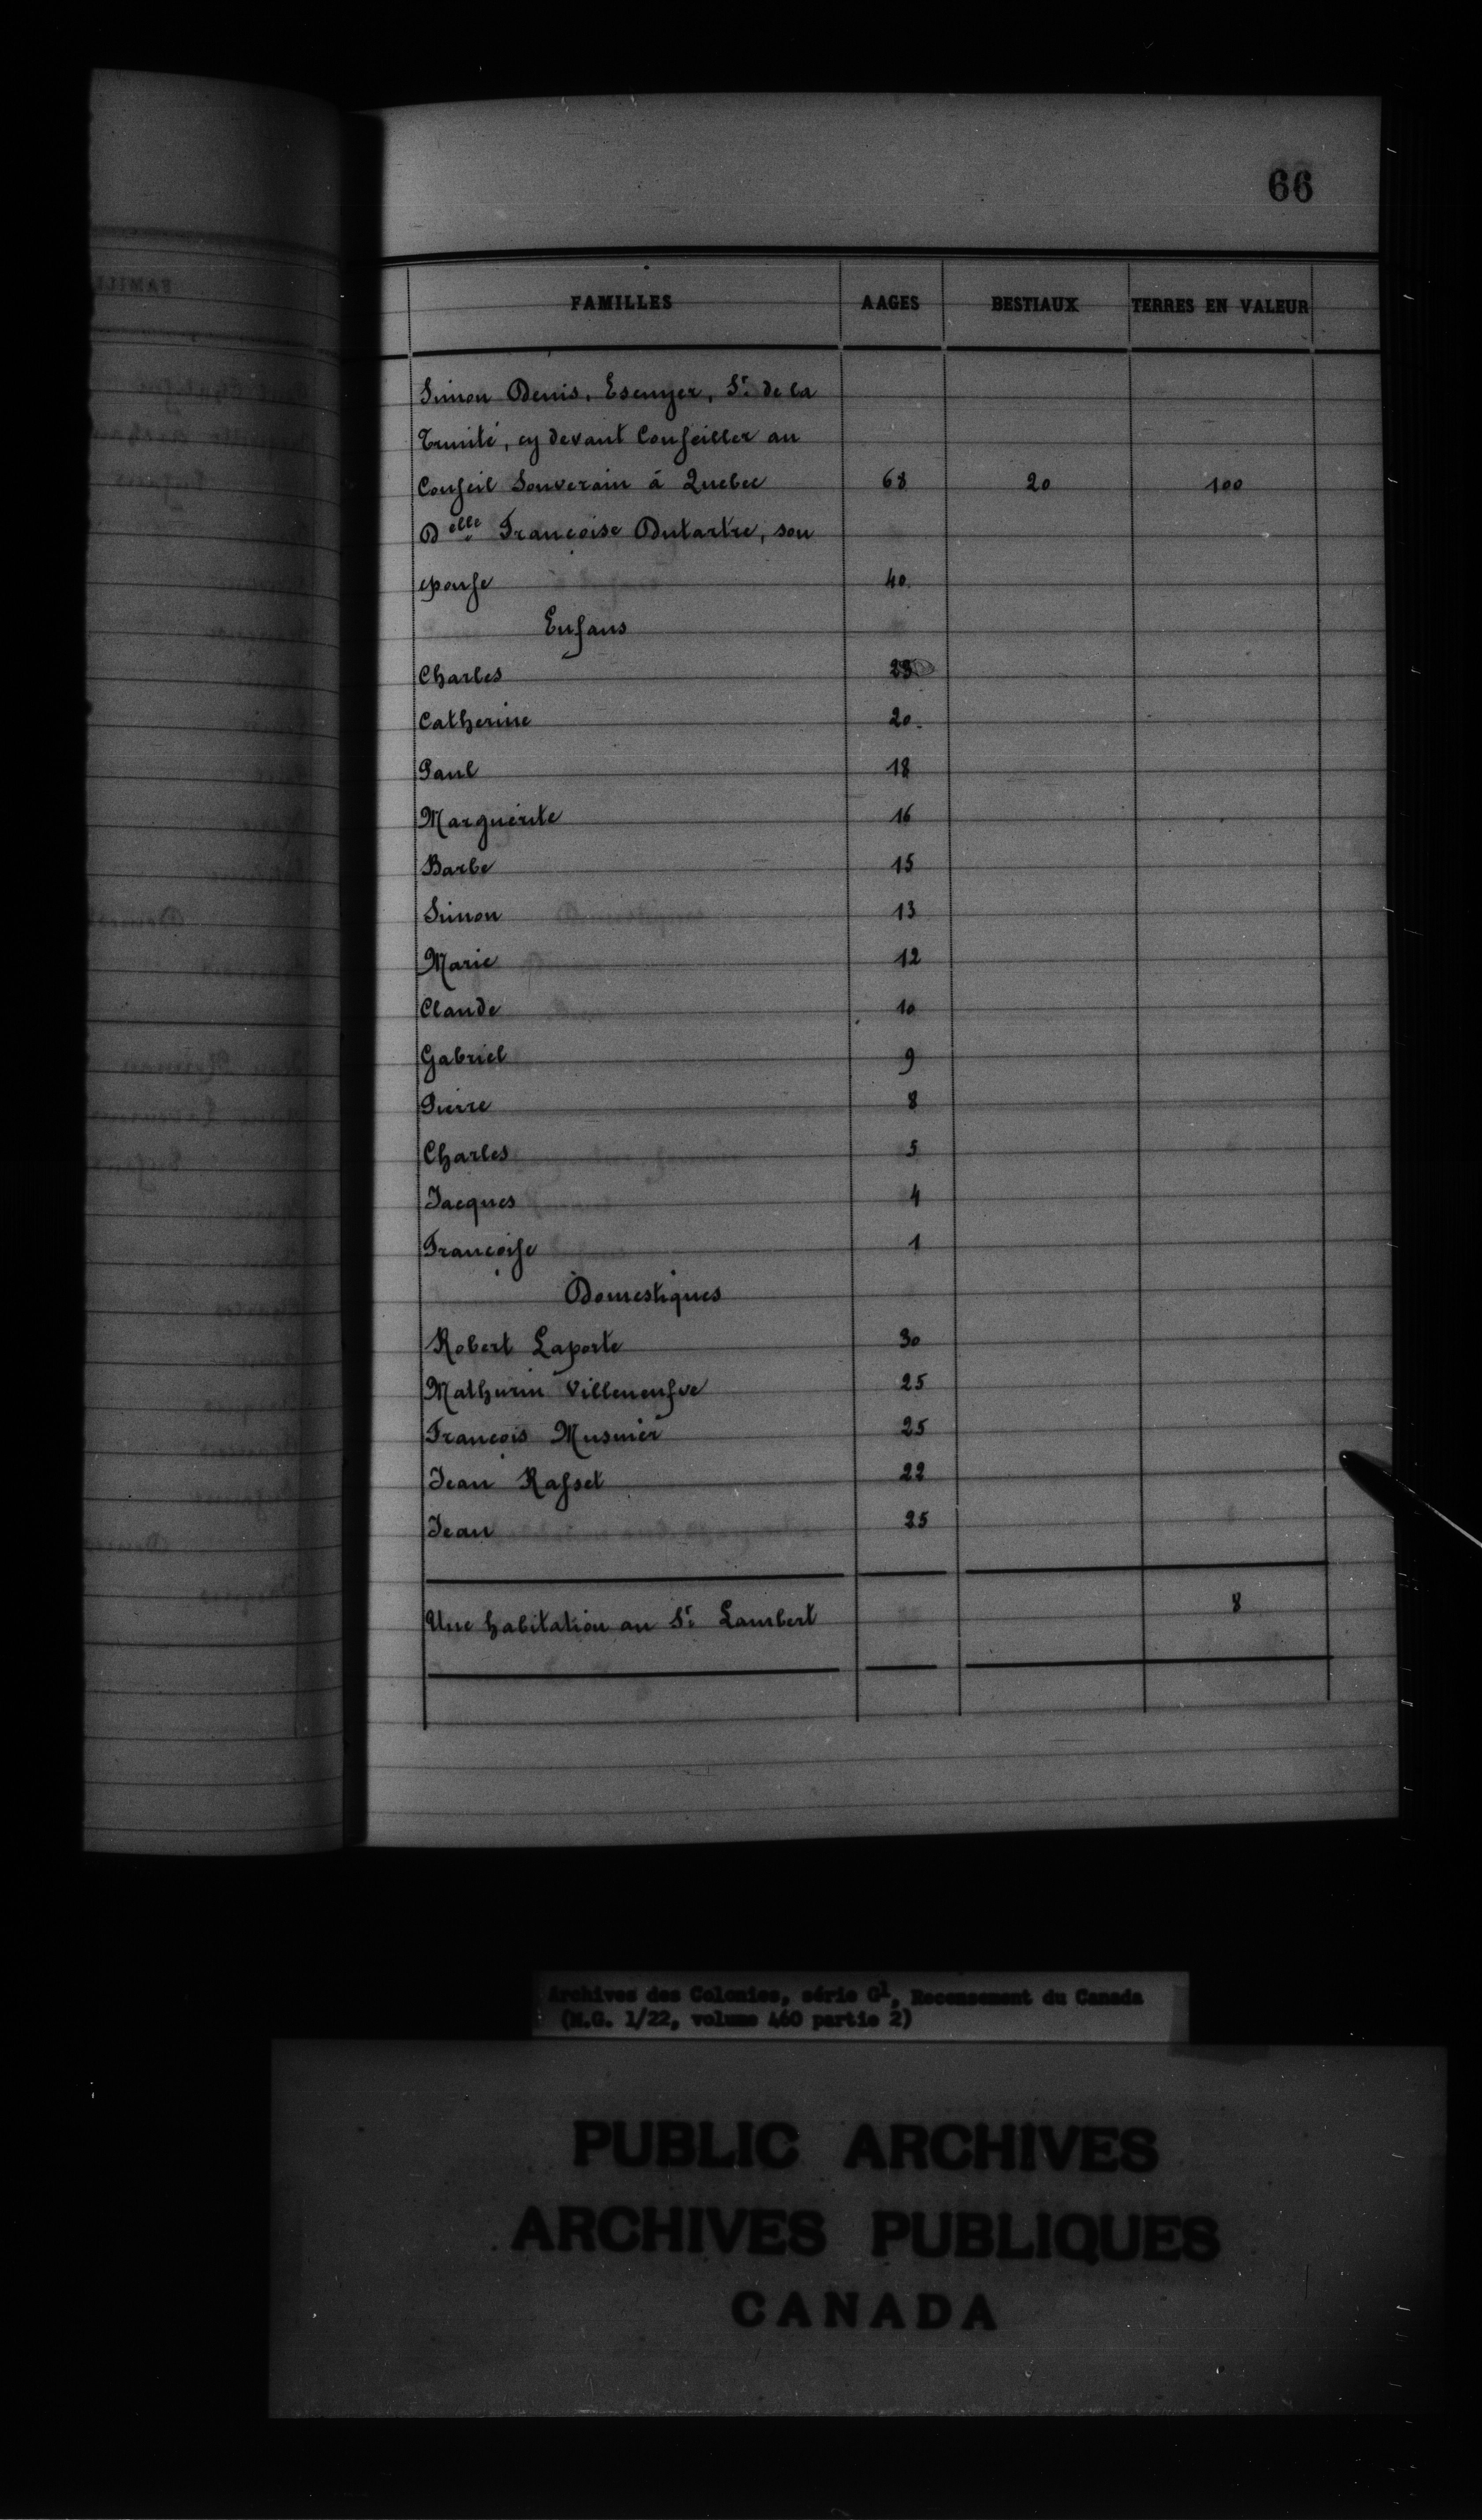 66
FAMILLES AAGES BESTIAUX TERRES EN VALEUR
Simon Denis, Escuyer, Sr. de la
Trinité, cy devant Conseiller au
Conseil Souverain à Quebec 68 20 100
Delle Francoise Dutartre, son
epouse 40.
Enfans
Charles 23
Catherine 20.
Paul 18
Marguerite 16
Barbe 15
Simon 13
Marie 12
Claude 10
Gabriel 9
Pierre 8
Charles 5
Jacques 4
Francoise 1
Domestiques
Robert Laporte 30
Mathurin Villeneufve 25
Francois Musnier 25
Jean Rasset 22
Jean 25
Une habitation au Sr. Lambert 8
Archives des Colonies, série G1, Recensement du Canada
(M.G. 1/22, volume 460 partie 2)
PUBLIC ARCHIVES
ARCHIVES PUBLIQUES
CANADA